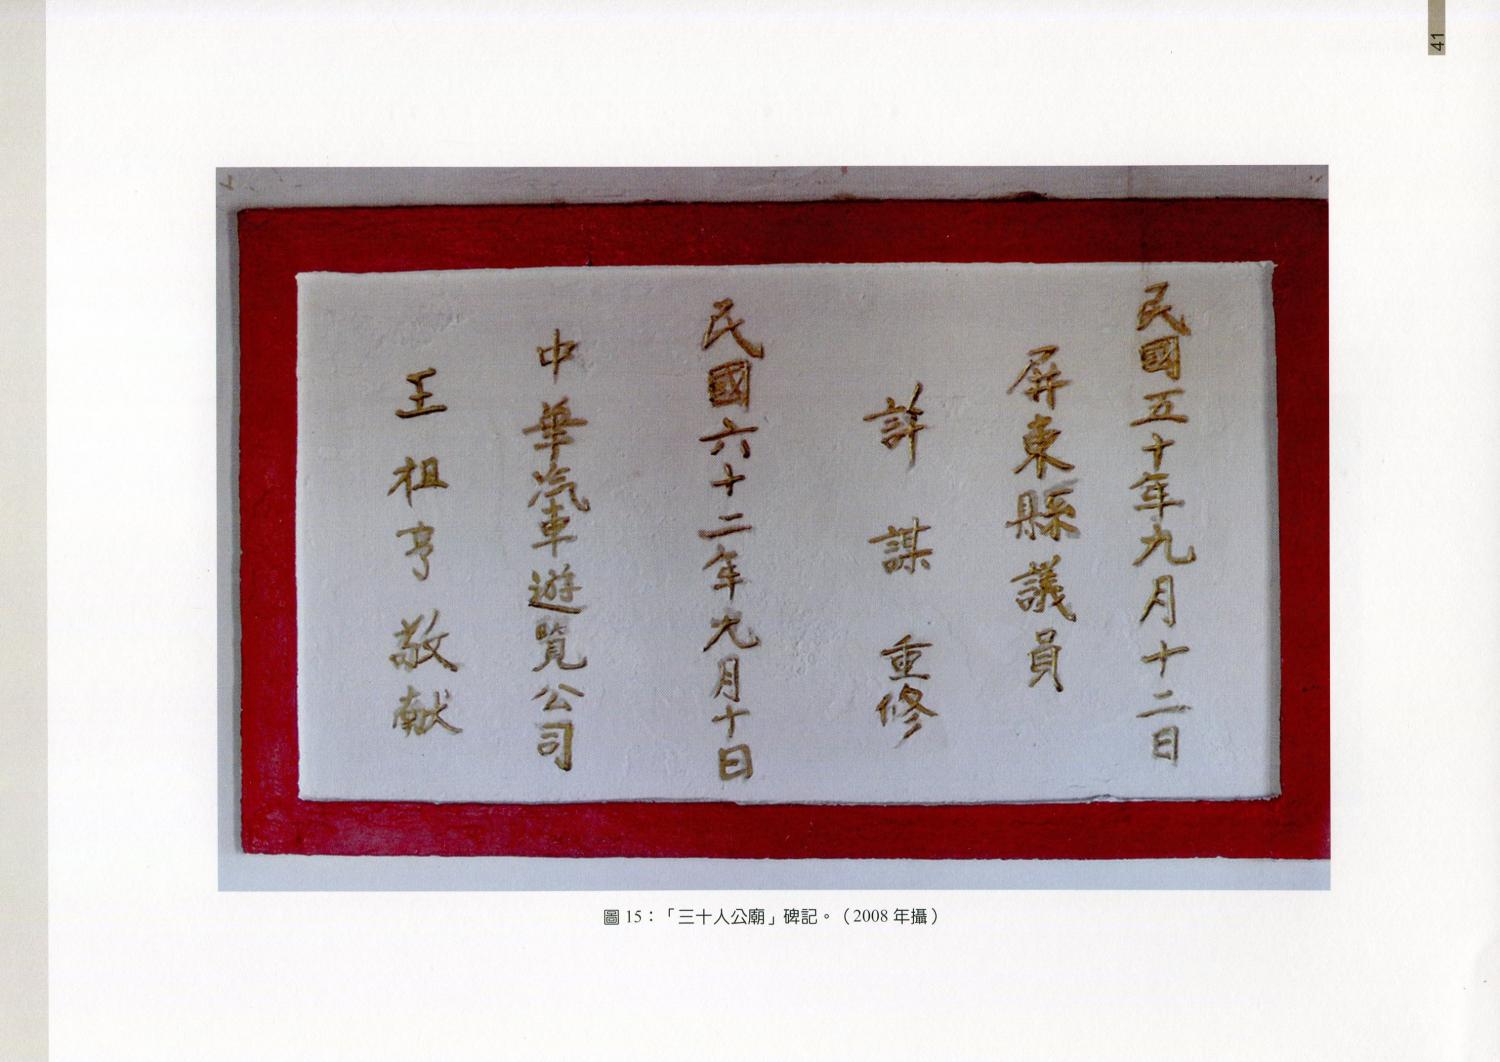 41
民國五十年九月十二日
屏東縣議員
許謀重修
民國六十二年九月十日
中華汽車遊覽公司
王祖亨敬献
圖 15：「三十人公廟」碑記。（2008 年攝）